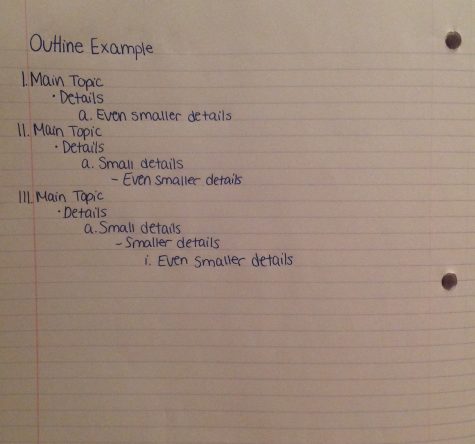 Outline Example
I. Main Topic
· Details
a. Even smaller details
II. Main Topic
· Details
a. Small details
- Even smaller details
III. Main Topic
· Details
a. Small details
- Smaller details
i. Even smaller details